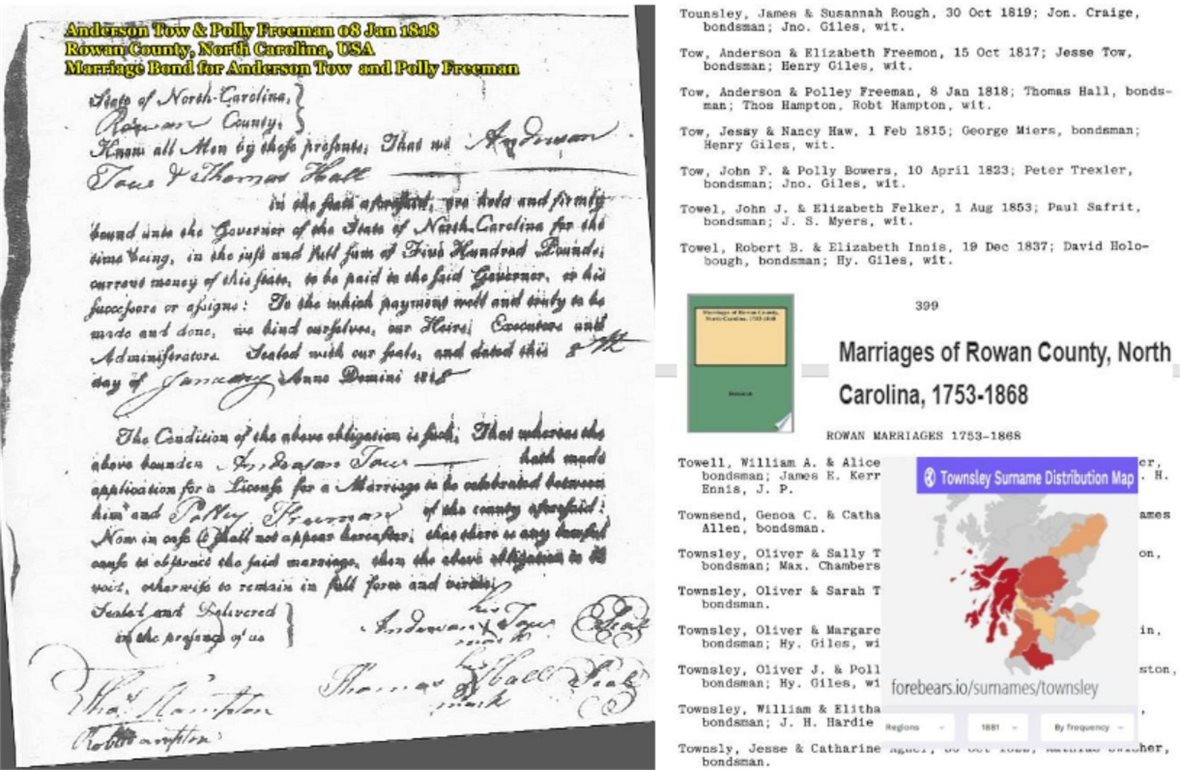 Anderson Tow & Polly Freeman 08 Jan 1818
Rowan County, North Carolina, USA
Marriage Bond for Anderson Tow and Polly Freeman
State of North-Carolina,
Rowan County,
Know all Men by these presents, That we Anderson
Tow & Thomas Hall
in the state aforesaid, are held and firmly
bound unto the Governor of the State of North-Carolina for the
time being, in the just and full sum of Five Hundred Pounds,
current money of this state, to be paid to the said Governor, or his
successors or assigns: To the which payment well and truly to be
made and done, we bind ourselves, our Heirs, Executors and
Administrators. Sealed with our seals, and dated this 8th
day of January Anno Domini 1818
The Condition of the above obligation is such, That whereas the
above bounden Anderson Tow hath made
application for a License for a Marriage to be celebrated between
him and Polley Freeman of the county aforesaid:
Now in case it shall not appear hereafter, that there is any lawful
cause to obstruct the said marriage, then the above obligation to be
void, otherwise to remain in full force and virtue.
Sealed and Delivered
in the presence of us
his
Anderson X Tow Seal
mark
his
Thomas Hall Seal
mark
Thos Hampton
Robt Hampton
Tounsley, James & Susannah Rough, 30 Oct 1819; Jon. Craige,
bondsman; Jno. Giles, wit.
Tow, Anderson & Elizabeth Freemon, 15 Oct 1817; Jesse Tow,
bondsman; Henry Giles, wit.
Tow, Anderson & Polley Freeman, 8 Jan 1818; Thomas Hall, bonds-
man; Thos Hampton, Robt Hampton, wit.
Tow, Jessy & Nancy Haw, 1 Feb 1815; George Miers, bondsman;
Henry Giles, wit.
Tow, John F. & Polly Bowers, 10 April 1823; Peter Trexler,
bondsman; Jno. Giles, wit.
Towel, John J. & Elizabeth Felker, 1 Aug 1853; Paul Safrit,
bondsman; J. S. Myers, wit.
Towel, Robert B. & Elizabeth Innis, 19 Dec 1837; David Holo-
bough, bondsman; Hy. Giles, wit.
399
Marriages of Rowan County,
North Carolina, 1753-1868
Marriages of Rowan County, North
Carolina, 1753-1868
ROWAN MARRIAGES 1753-1868
Towell, William A. & Alice er,
bondsman; James E. Kerr . H.
Ennis, J. P.
Townsend, Genoa C. & Catha ames
Allen, bondsman.
Townsley, Oliver & Sally T on,
bondsman; Max. Chambers
Townsley, Oliver & Sarah T
bondsman.
Townsley, Oliver & Margare in,
bondsman; Hy. Giles, wi
Townsley, Oliver J. & Poll ston,
bondsman; Hy. Giles, wi
Townsley, William & Elitha
bondsman; J. H. Hardie
Townsly, Jesse & Catharine her,
bondsman.
Townsley Surname Distribution Map
forebears.io/surnames/townsley
Regions
1881
By frequency